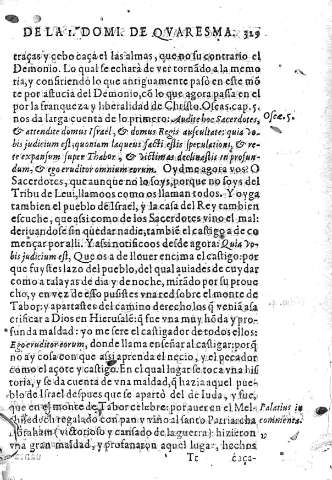 DE LA I. DOMI. DE QVARESMA. 329
traças y cebo caça el las almas, que no su contrario el
Demonio. Lo qual se echarà de ver tornãdo a la memo
ria, y consiriendo lo que antiguamente pasò en este mõ
te por astucia del Demonio, cõ lo que agora pasa en el
por la franqueza y liberalidad de Christo. Oseas. cap. 5.
nos da larga cuenta de lo primero: Audite hoc Sacerdotes,
Oseæ. 5.
& attendite domus Israel, & domus Regis auscultate: quia vo
bis judicium est, quoniam laqueus facti estis speculationi, & re
te expansum super Thabor, & victimas declinastis in profun
dum, & ego eruditor omnium eorum. Oydme agora vos: O
Sacerdotes, que aunque no lo soys, porque no soys del
Tribu de Leui, llamoos como os llaman todos. Y oyga
tambien el pueblo de Israel, y la casa del Rey tambien
escuche, que assi como de los Sacerdotes vino el mal:
deriuandose sin quedar nadie, tambiẽ el castigo a de co
mençar por alli. Y assi notificoos desde agora: Quia vo-
bis judicium est, Que os a de llouer encima el castigo: por
que fuystes lazo del pueblo, del qual auiades de cuydar
como atalayas de dia y de noche, mirãdo por su proue
cho, y en vez de esso pusistes vna red sobre el monte de
Tabor: y apartastes del camino derecho los q̃ veniã a sa
crificar a Dios en Hierusalẽ: q̃ fue vna muy hõda y pro-
funda maldad: yo me sere el castigador de todos ellos:
Ego eruditor eorum, donde llama enseñar al castigar: porq̃
no ay cosa con que assi aprenda el necio, y el pecador
como el açote y castigo. En el qual lugar se toca vna his
toria, y se da cuenta de vna maldad, q̃ hazia aquel pue-
blo de Israel despues que se apartò del de Iuda, y fue,
que en el monte de Tabor celebre: por auer en el Mel-
Palatius in
chisedech regalado con pan y vino al santo Patriarcha
comment.
Abraham (victorioso y cansado de la guerra) hizieron
vna gran maldad, y profanaron aquel lugar, hechos
Tt caça-